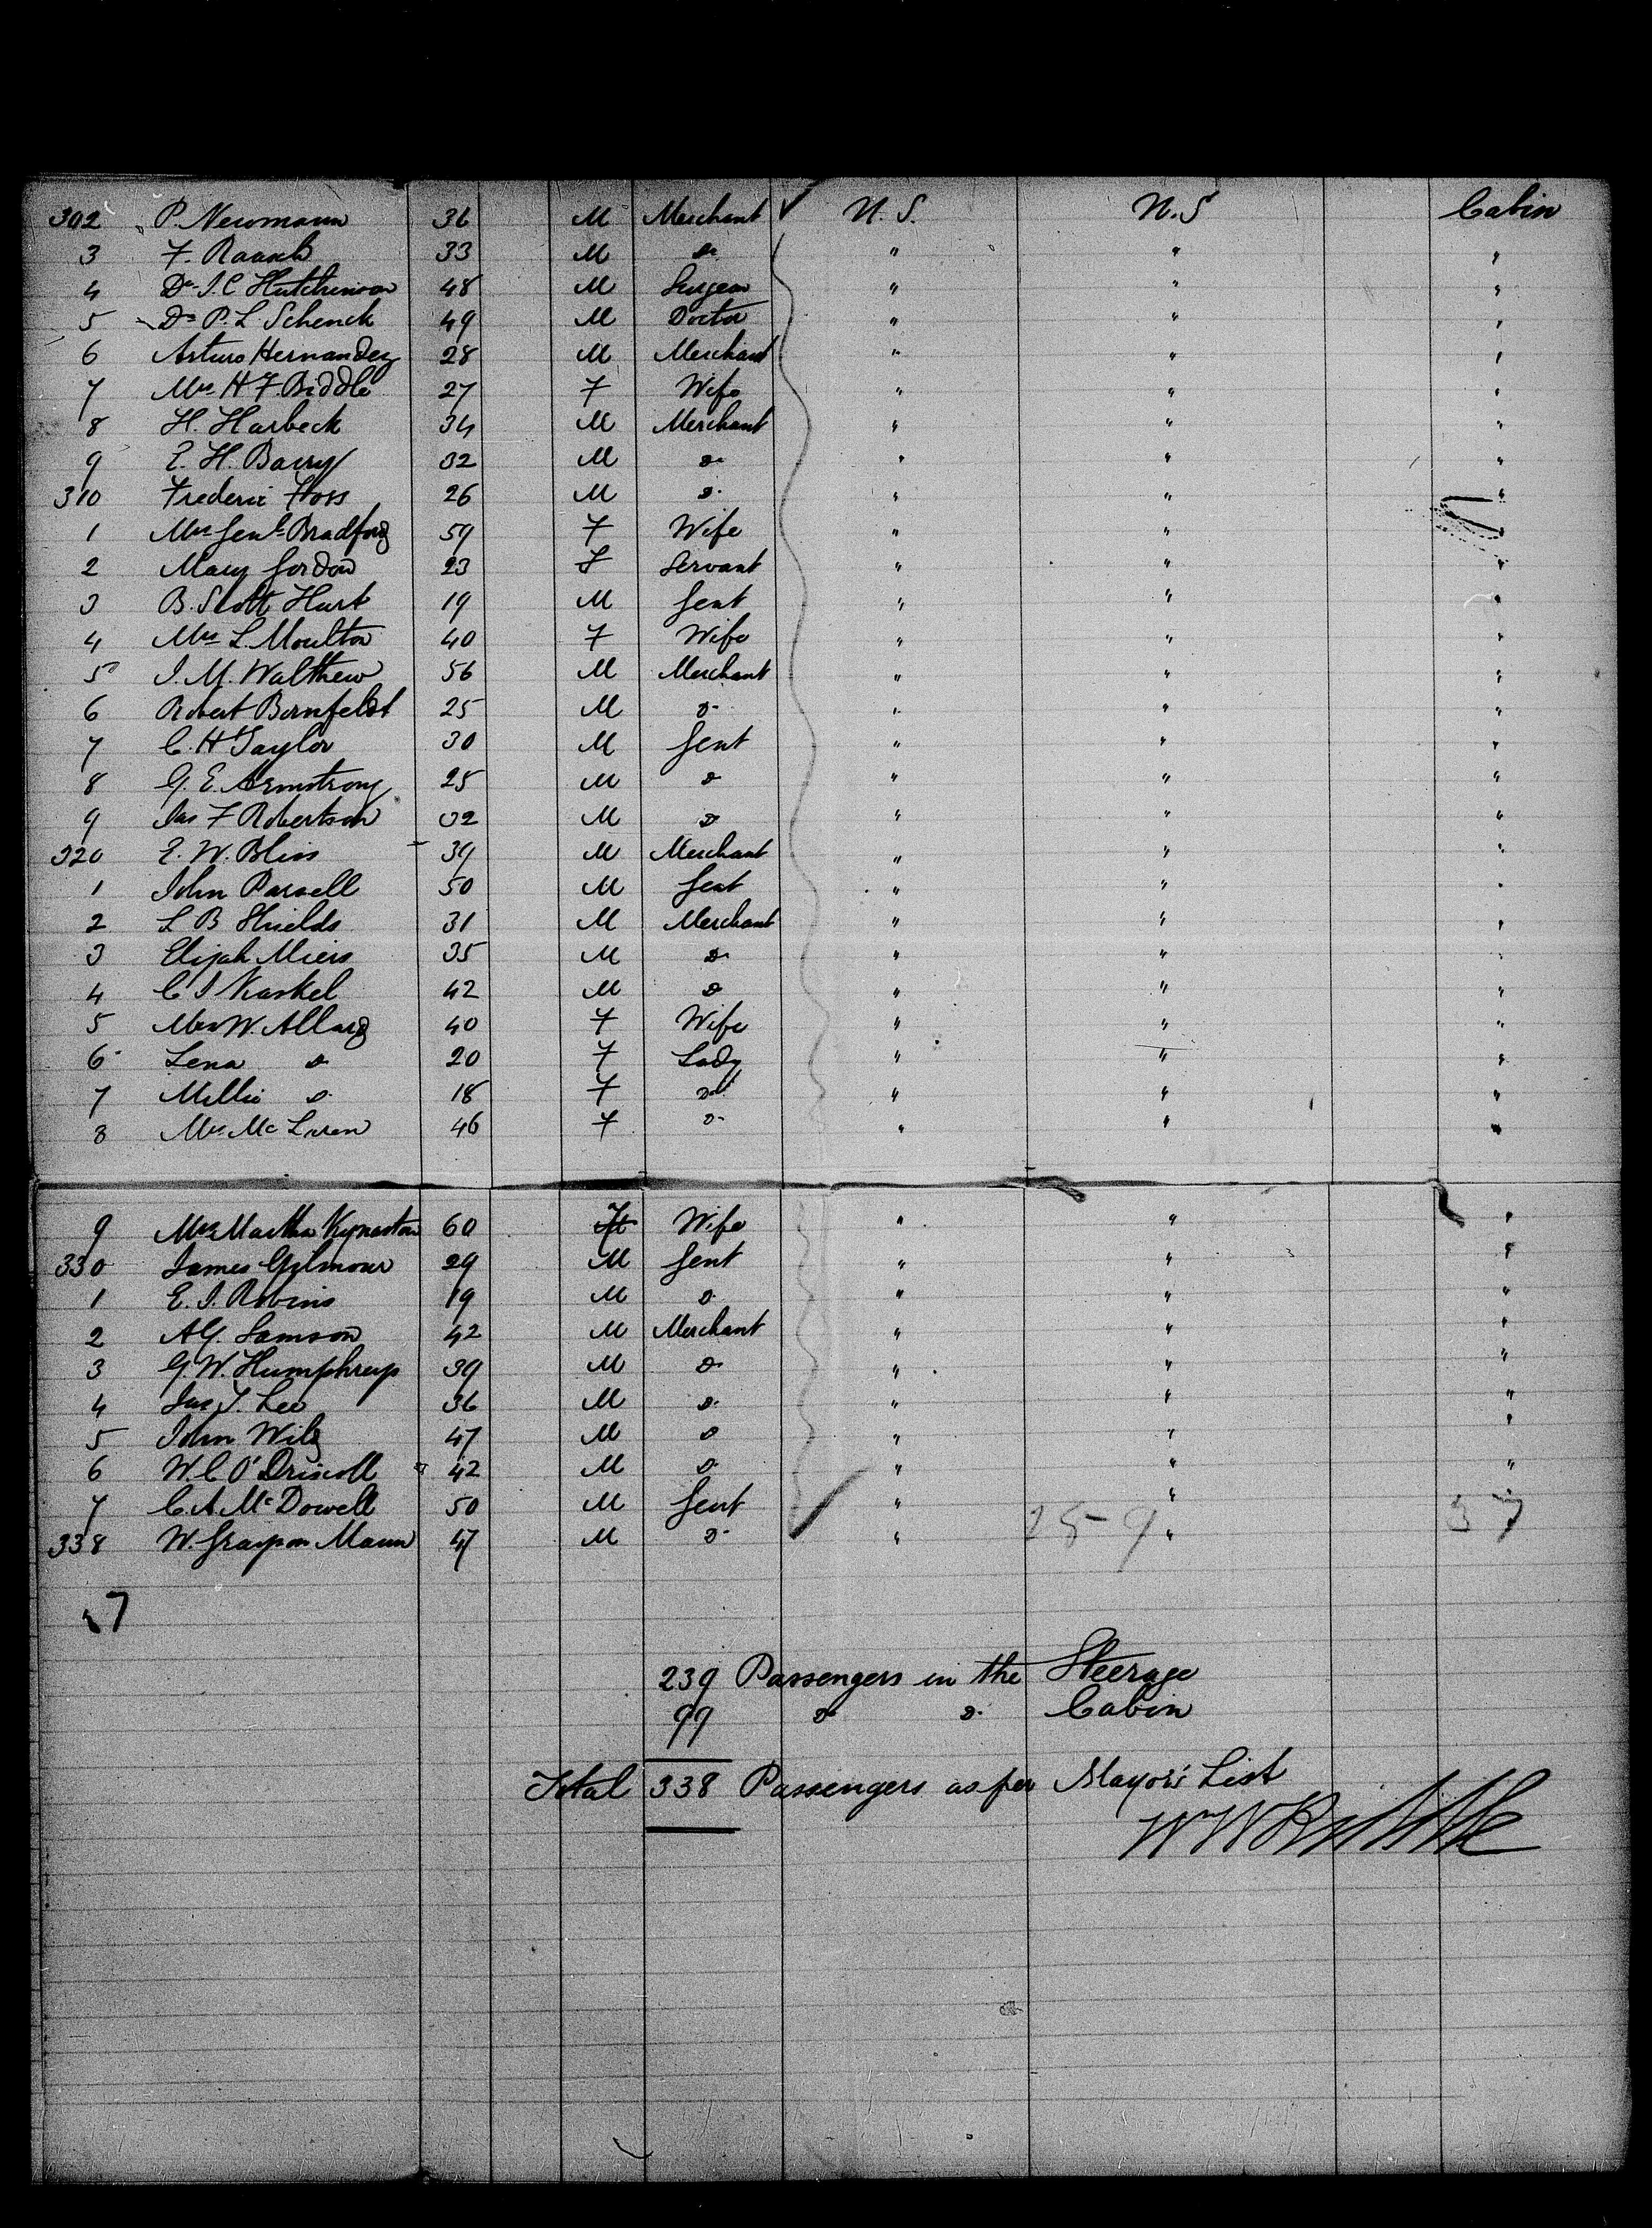 302 P. Newmann 36 M Merchant N. S. N. S Cabin
3 F. Raasch 33 M Do " " "
4 Dr. J. C Hutchinson 48 M Surgeon " " "
5 Dr. P. L Schenck 49 M Doctor " " "
6 Arturo Hernandez 28 M Merchant " " "
7 Mrs H F. Biddle 27 F Wife " " "
8 H. Harbeck 34 M Merchant " " "
9 E. H. Barry 32 M Do " " "
310 Frederic Foss 26 M Do " " "
1 Mrs Genl. Bradford 59 F Wife " " "
2 Mary Gordon 23 F Servant " " "
3 B. Scott Hurt 19 M Gent " " "
4 Mrs L. Moulton 40 F Wife " " "
5 J. M. Walthew 56 M Merchant " " "
6 Robert Bornfeldt 25 M Do " " "
7 C. H Taylor 30 M Gent " " "
8 G. E. Armstrong 25 M Do " " "
9 Jas F Robertson 32 M Do " " "
320 E. W. Bliss 39 M Merchant " " "
1 John Parsell 50 M Gent " " "
2 L B Shields 31 M Merchant " " "
3 Elijah Miers 35 M Do " " "
4 C J Kaskel 42 M Do " " "
5 Mrs W. Allard 40 F Wife " " "
6 Lena Do 20 F Lady " " "
7 Millie Do 18 F Do " " "
8 Mrs. Mc Laren 46 F Do " " "
9 Mrs Martha Kynaston 60 F Wife " " "
330 James Gilmour 29 M Gent " " "
1 E. J. Robins 19 M Do " " "
2 A G. Samson 42 M Merchant " " "
3 G. W. Humphreys 39 M Do " " "
4 Jas T. Lee 36 M Do " " "
5 John Wild 47 M Do " " "
6 W. C O'Driscoll 42 M Do " " "
7 C. A. Mc Dowell 50 M Gent " " "
338 W. Grayson Mann 47 M Do " " "
259 37
239 Passengers in the Steerage
99 Do Do Cabin
Total 338 Passengers as per Mayor's List